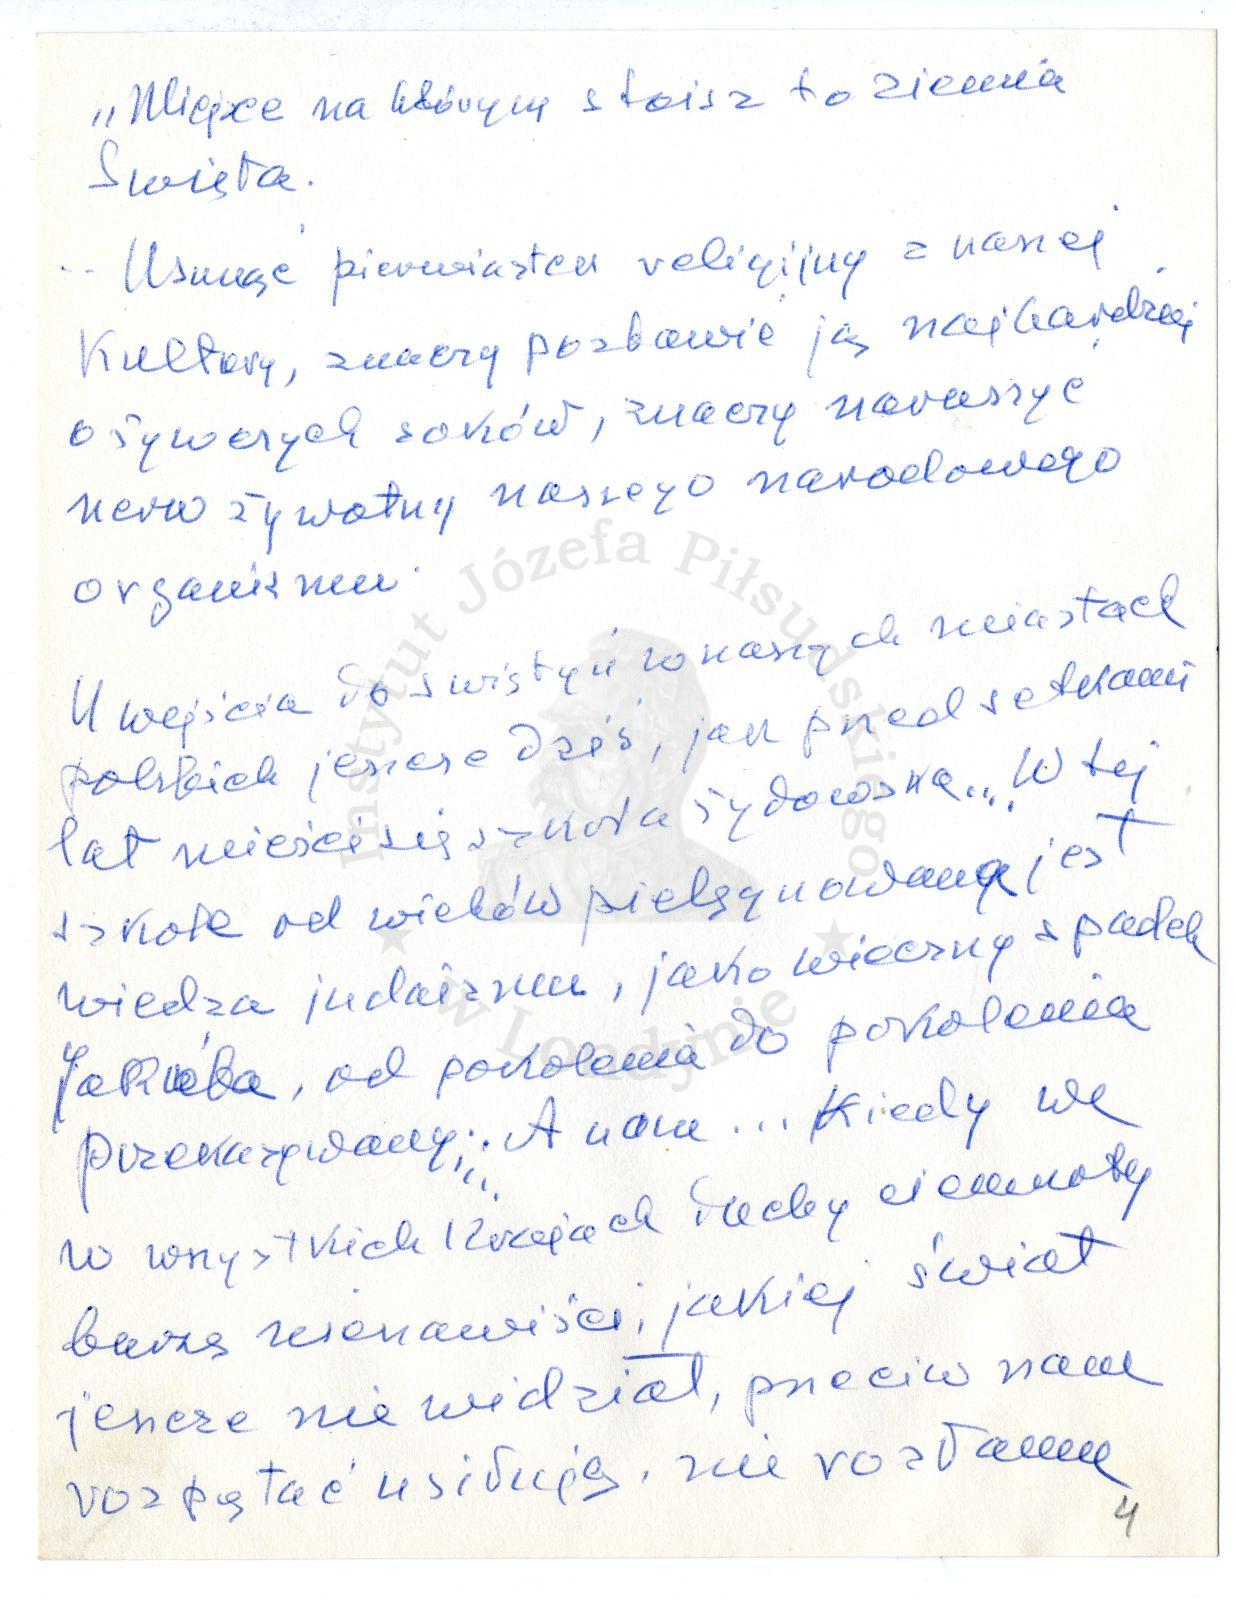 „Miejsce na którym stoisz to ziemia
Święta.
.. Usunąć pierwiastek religijny z naszej
Kultury, znaczy pozbawić ją najbardziej
ożywczych soków, znaczy naruszyć
nerw żywotny naszego narodowego
organizmu.
U wejścia do świątyń w naszych miastach
polskich jeszcze dziś, jak przed setkami
lat mieści się szkoła żydowska... W tej
szkole od wieków pielęgnowana jest
wiedza judaizmu, jako wieczny spadek
Jakóba, od pokolenia do pokolenia
przekazywany... A nam... Kiedy we
w wszystkich krajach duchy ciemnoty
burzę nienawiści, jakiej świat
jeszcze nie widział, przeciw nam
rozpętać usiłują, nie rozłamu
4
Instytut Józefa Piłsudskiego
w Londynie